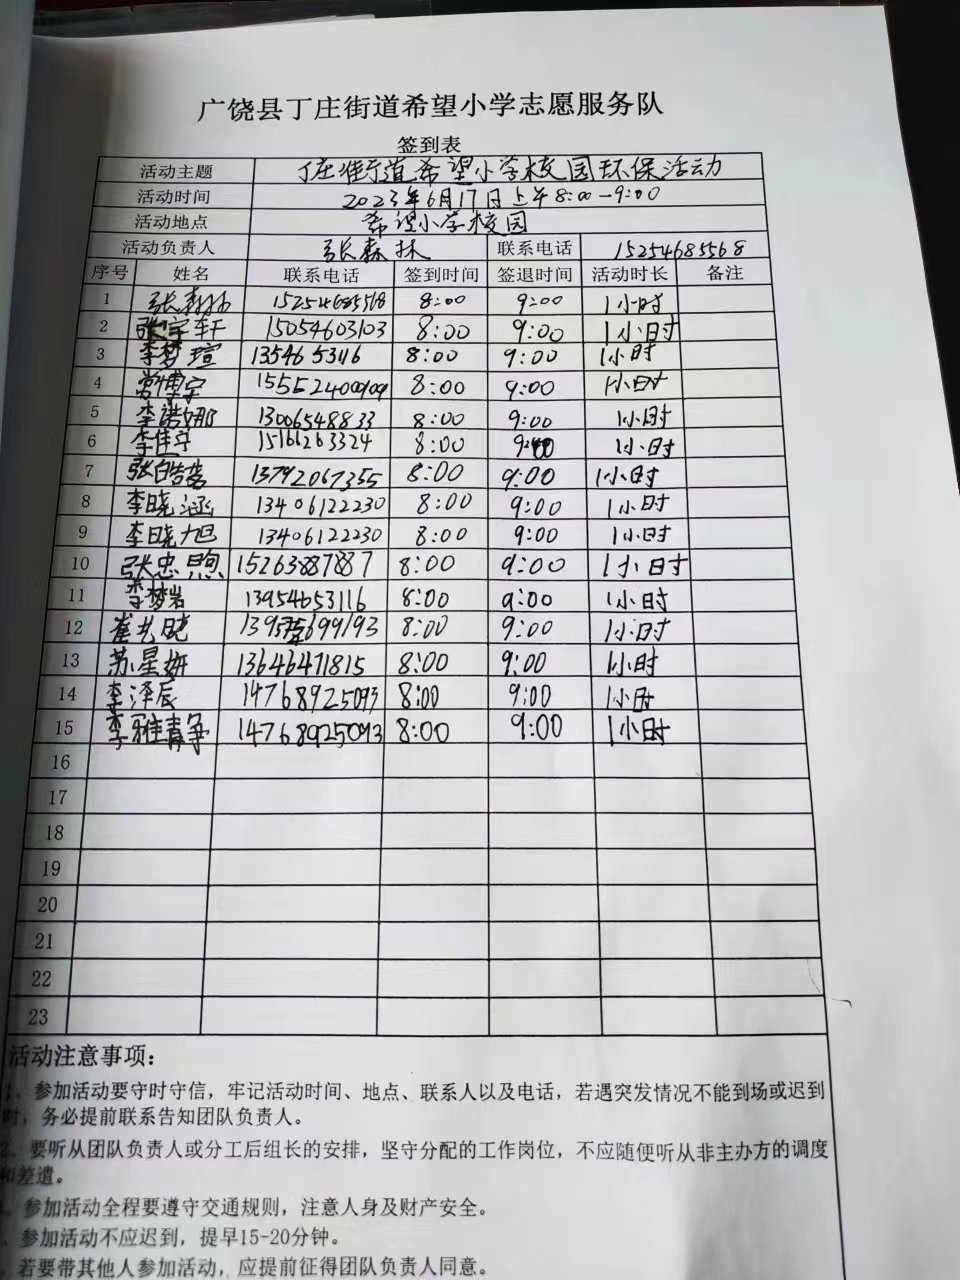 广饶县丁庄街道希望小学志愿服务队
签到表
活动主题 丁庄街道希望小学校园环保活动
活动时间 2023年6月17日上午8:00-9:00
活动地点 希望小学校园
活动负责人 张森林 联系电话 15254685568
序号 姓名 联系电话 签到时间 签退时间 活动时长 备注
1 张森林 15254685568 8:00 9:00 1小时
2 张宇轩 15054603103 8:00 9:00 1小时
3 李梦瑄 1354653116 8:00 9:00 1小时
4 常博宇 15552400909 8:00 9:00 1小时
5 李诺娜 13065488833 8:00 9:00 1小时
6 李佳宁 15166263324 8:00 9:00 1小时
7 张皓 13792067355 8:00 9:00 1小时
8 李晓涵 13406122230 8:00 9:00 1小时
9 李晓旭 13406122230 8:00 9:00 1小时
10 张忠煦 15263887887 8:00 9:00 1小时
11 李梦岩 13954653116 8:00 9:00 1小时
12 崔艺晓 8:00 9:00 1小时
13 苏星妍 13646471815 8:00 9:00 1小时
14 李泽辰 14768925093 8:00 9:00 1小时
15 李雅静 14768925093 8:00 9:00 1小时
16
17
18
19
20
21
22
23
活动注意事项：
1、参加活动要守时守信，牢记活动时间、地点、联系人以及电话，若遇突发情况不能到场或迟到
时，务必提前联系告知团队负责人。
2、要听从团队负责人或分工后组长的安排，坚守分配的工作岗位，不应随便听从非主办方的调度
和差遣。
、参加活动全程要遵守交通规则，注意人身及财产安全。
、参加活动不应迟到，提早15-20分钟。
、若要带其他人参加活动，应提前征得团队负责人同意。